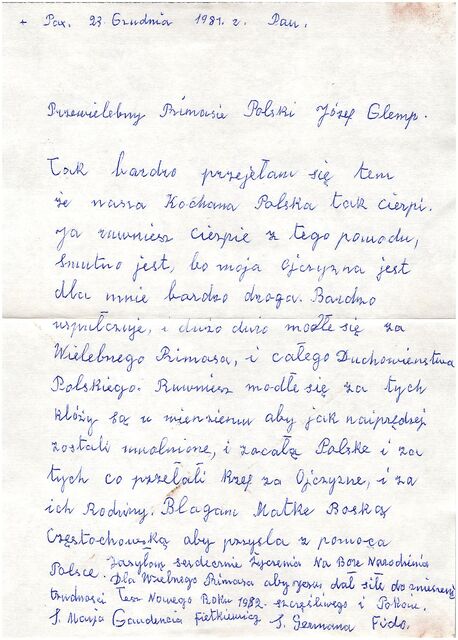 + Pax. 23. Grudnia 1981. r. Pau.
Przewielebny Primasie Polski Józef Glemp.
Tak bardzo przejełam się tem
że nasza Kochana Polska tak cierpi.
Ja ruwniesz cierpie z tego powodu,
smutno jest, bo moja Ojczyzna jest
dla mnie bardzo droga. Bardzo
wspułczuje, i dużo dużo modle się za
Wielebnego Primasa, i całego Duchowieństwa
Polskiego. Ruwniesz modle się za tych
którzy są w wienzieniu aby jak najprędzej
zostali uwolnione, i za całą Polske i za
tych co przelali krew za Ojczyzne, i za
ich Rodziny. Błagam Matke Boską
Częstochowską aby przyszła z pomocą
Polsce. Zasyłam serdecznie Życzenia Na Boże Narodzenia
Dla Wielebnego Primasa aby Jezus dał siłe do zniesienia
trudności Tesz Nowego Roku 1982. szczęśliwego i Pokoju.
S. Maria Gaudencia Fietkiewicz S. Germana Fido.